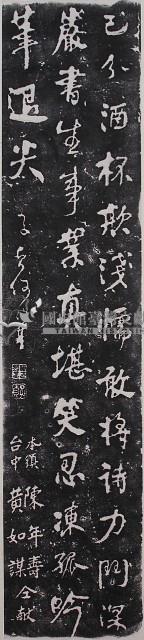 已分酒杯欺淺懦敢將詩力鬥深
嚴書生事業真堪笑忍凍孤吟
筆退尖
子貞何紹基
本鎮 陳年壽
台中 黃如謀 仝献